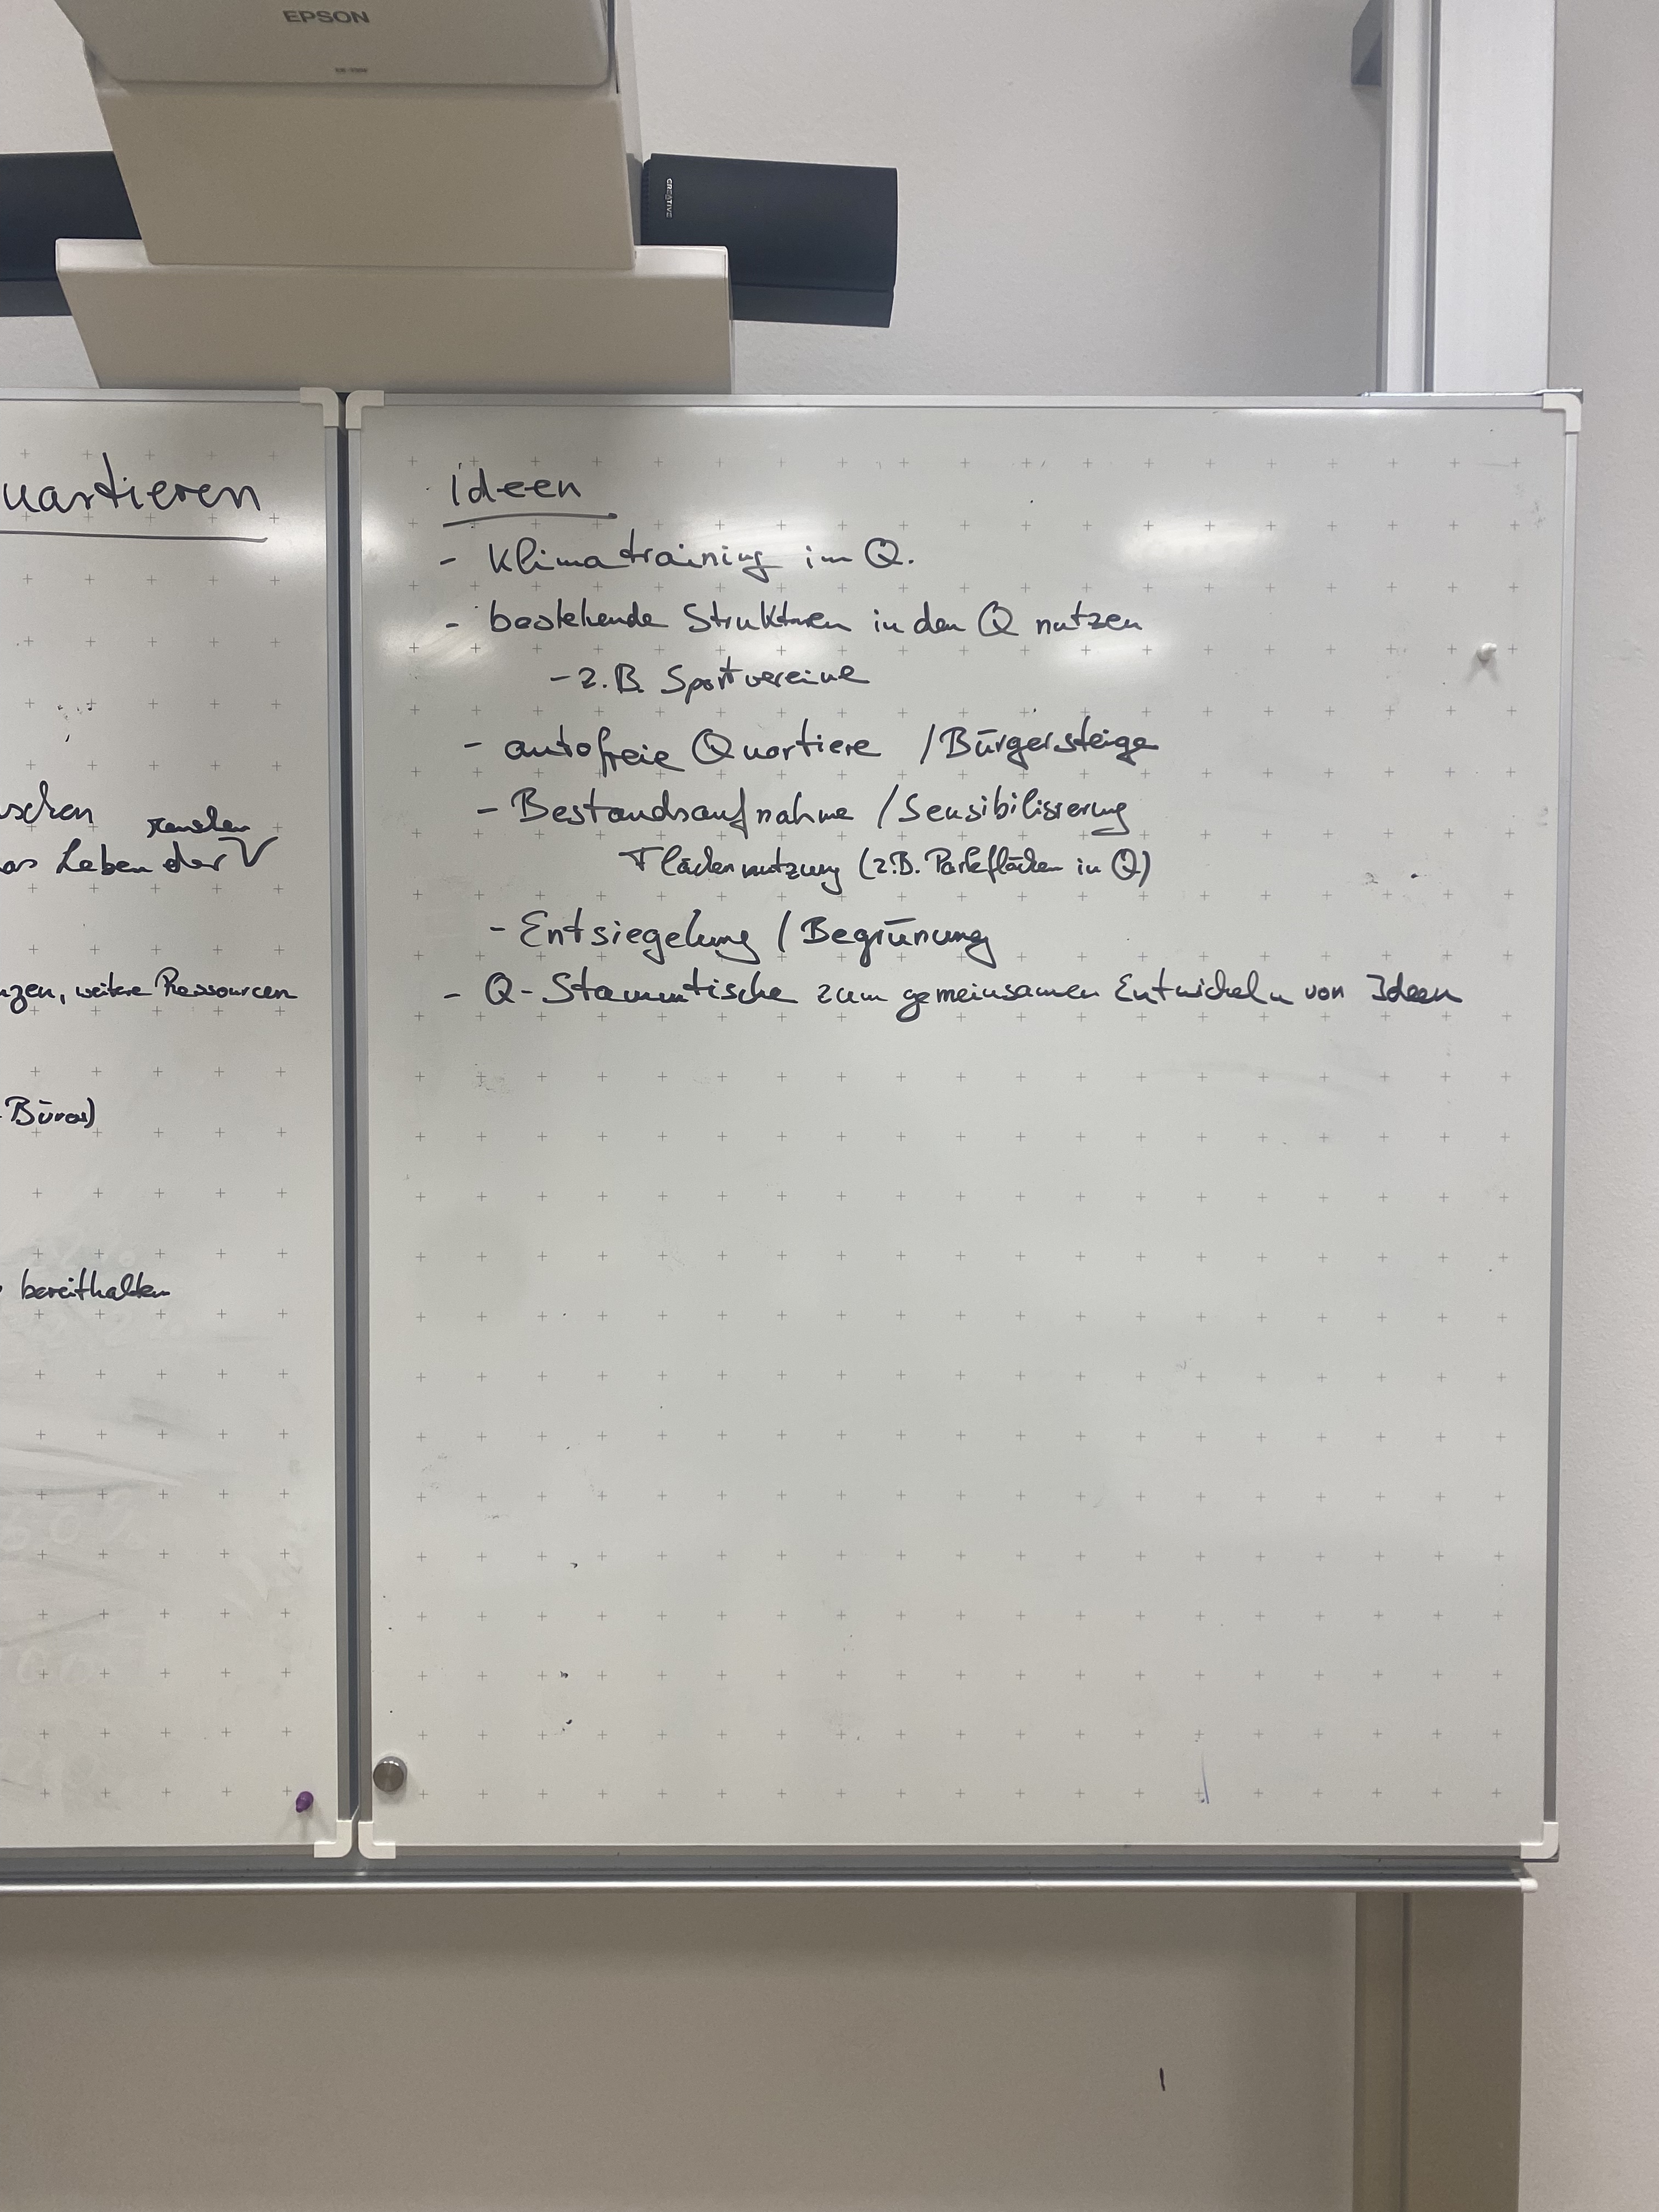 EPSON
CREATIVE
uartieren
schen
menschen
as Leben der V
nzen, weitere Ressourcen
-Büros)
bereithalten
Ideen
- Klimatraining im Q.
- bestehende Strukturen in den Q nutzen
- z.B. Sportvereine
- autofreie Quartiere / Bürgersteige
- Bestandsaufnahme / Sensibilisierung
Flächennutzung (z.B. Parkflächen in Q)
- Entsiegelung / Begrünung
- Q-Stammtische zum gemeinsamen Entwickeln von Ideen